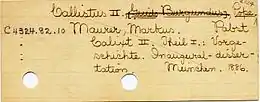 Callistus II, Guido Burgundus, Pope.
C 4324.82.10 Maurer, Markus. Pabst
: Calixt II. Theil I.: Vorge-
: schichte. Inaugural-disser-
: tation. München. 1886.